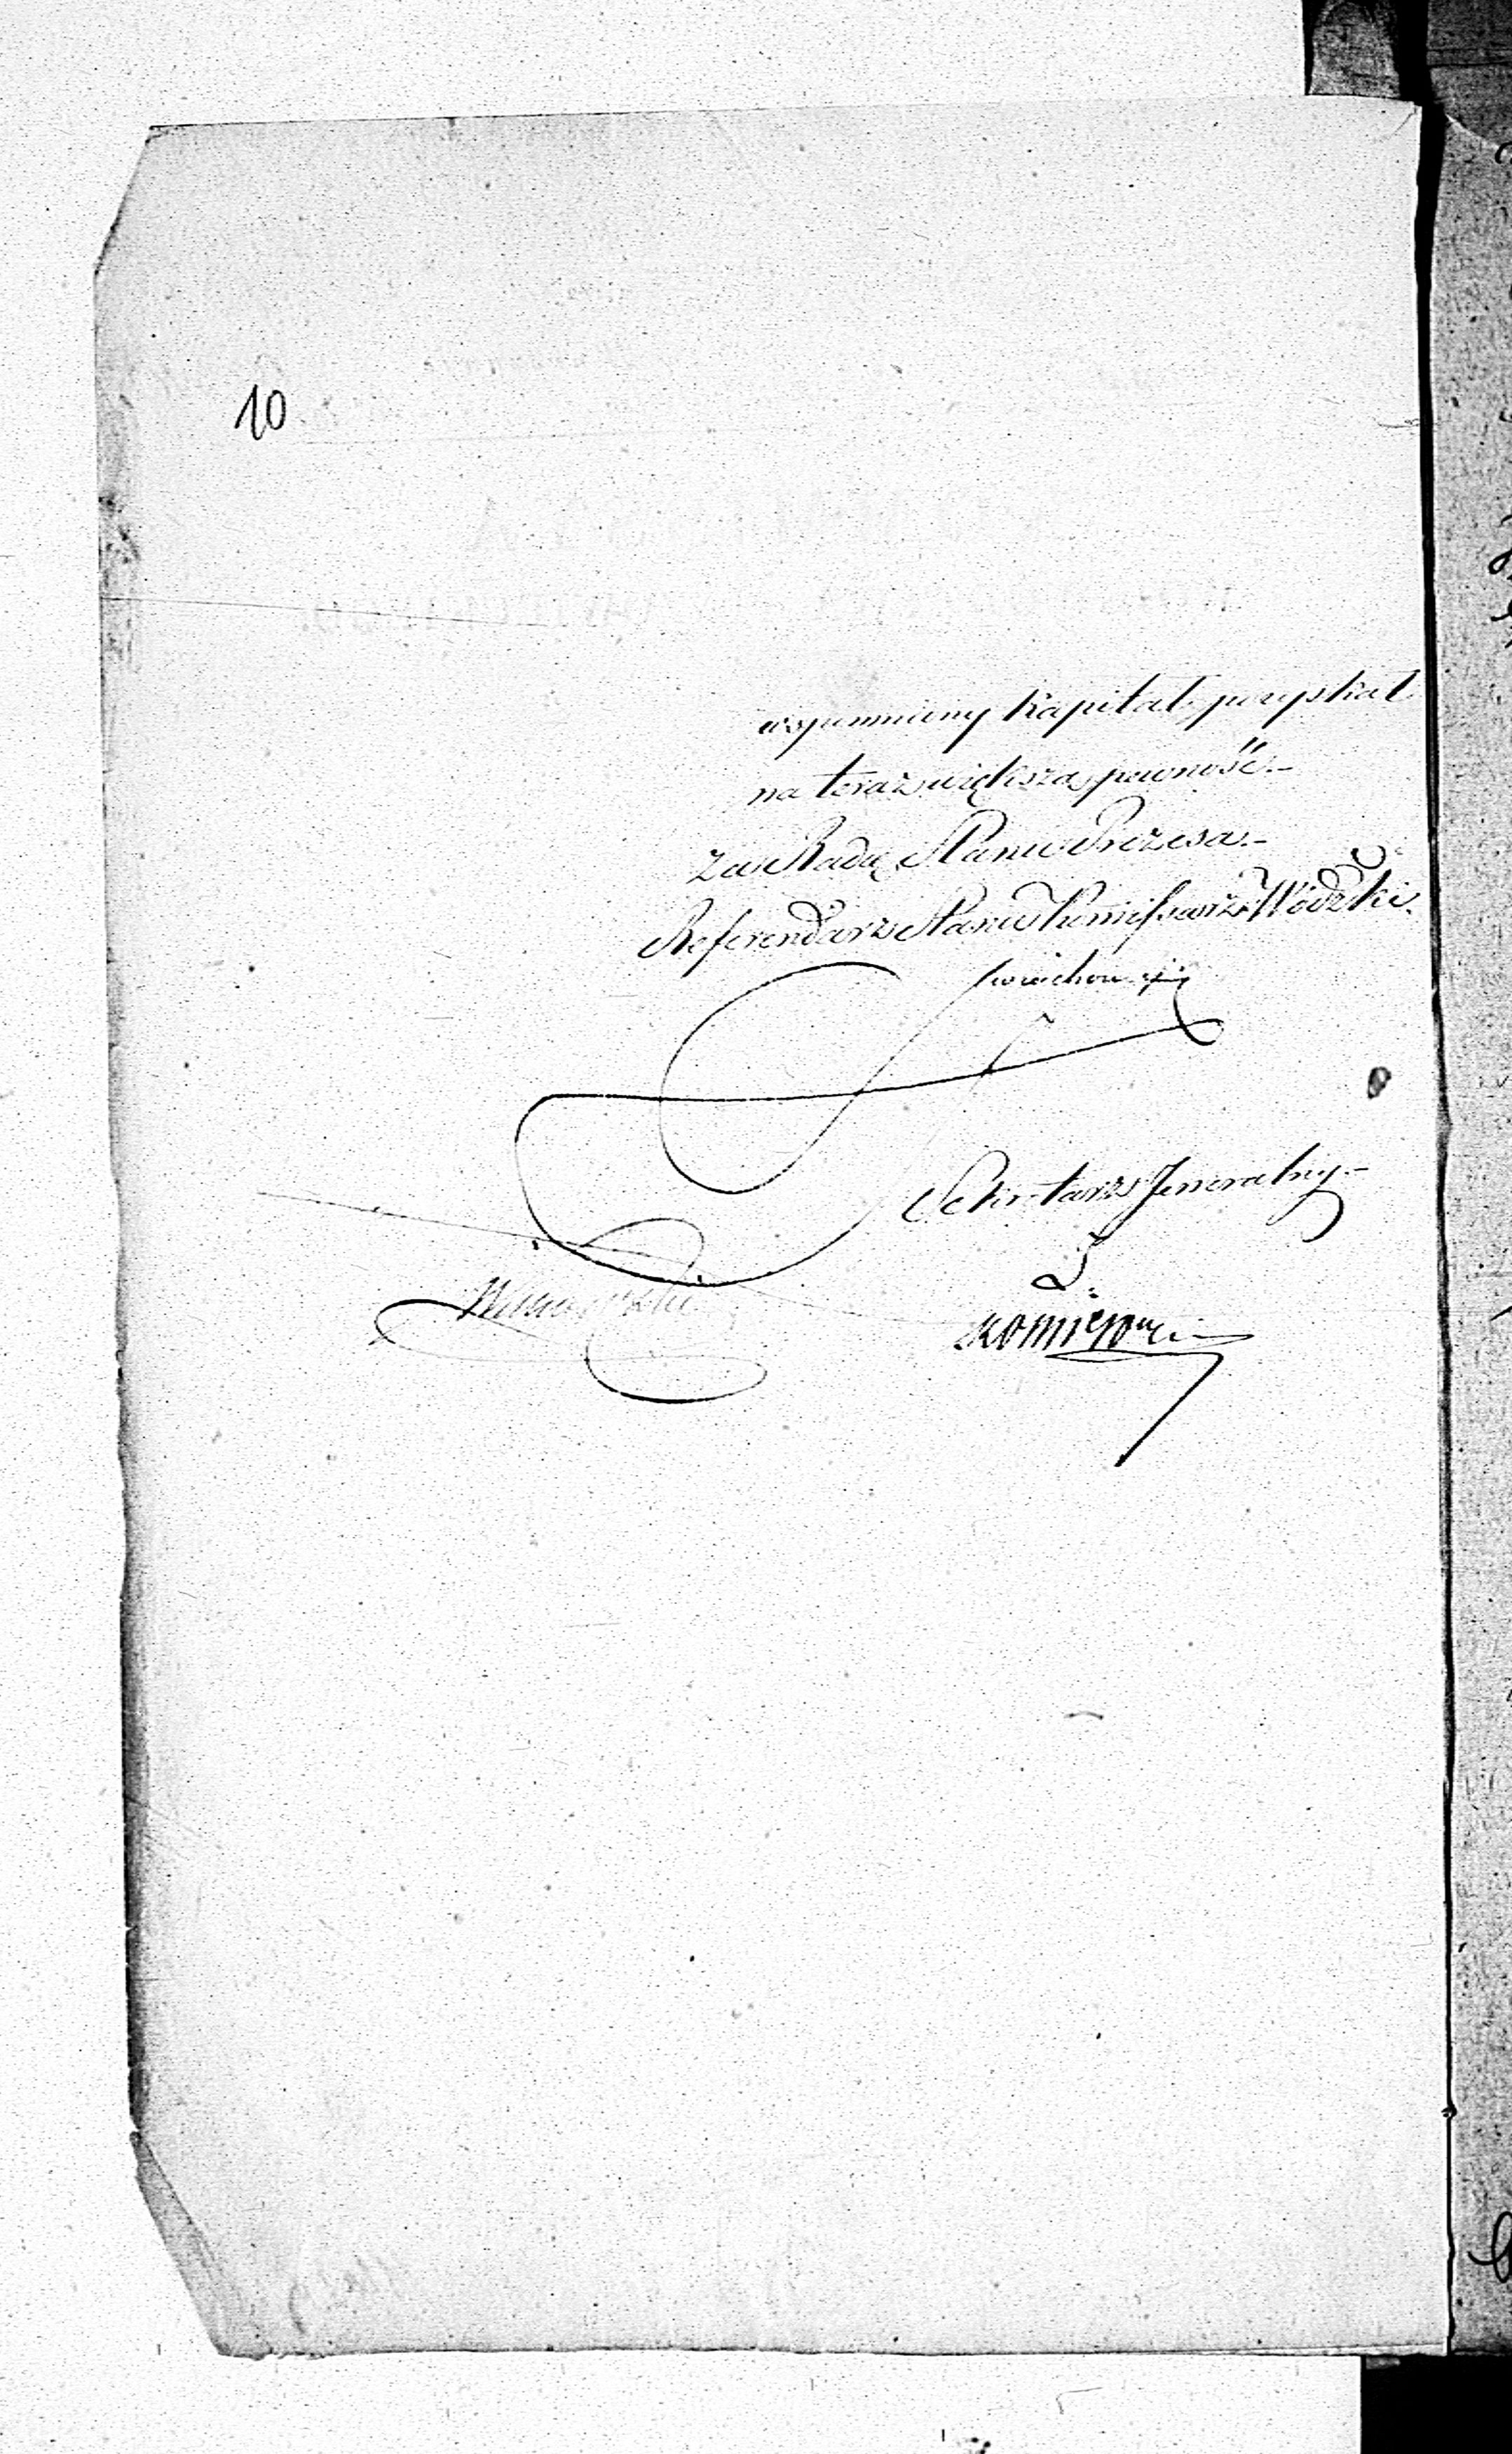 10
wspomniony kapitał, pozyskał
na teraz większą pewność.-
Za Radcę Stanu Prezesa.-
Referendarz Stanu Kommissarz Wódzki.
Sekretarz Jeneralny.-